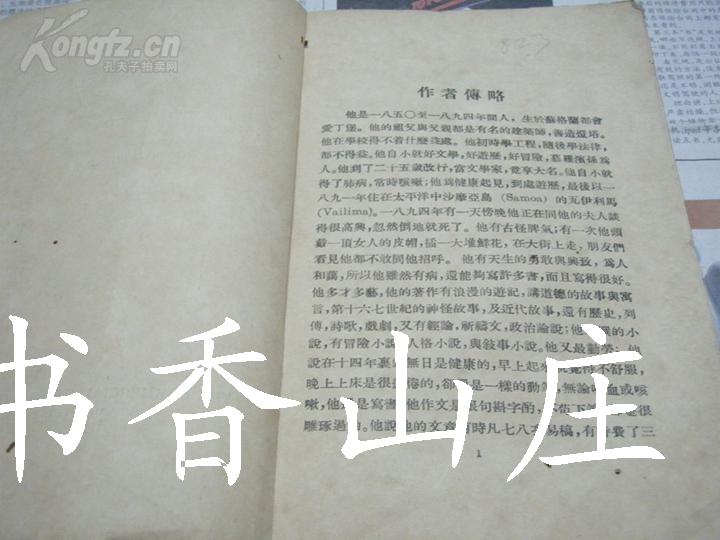 Kongfz.cn
孔夫子拍卖网
作者傳略
他是一八五〇至一八九四年間人，生於蘇格蘭都會
愛丁堡。他的祖父與父親都是有名的建築師，善造燈塔。
他在學校得不着什麼益處。他初時學工程，隨後學法律，
都不得益。他自小就好文學，好遊歷，好冒險，慕羅濱孫爲
人。他到了二十五歲改行，當文學家，竟享大名。他自小就
得了肺病，常時咳嗽；他爲健康起見，到處遊歷，最後以一
八九一年住在太平洋中沙摩亞島 (Samoa) 的瓦伊利馬
(Vailima)。一八九四年有一天傍晚他正在同他的夫人談
得很高興，忽然倒地就死了。他有古怪脾氣；有一次他頭
戴一頂女人的皮帽，插一大堆鮮花，在大街上走，朋友們
看見他都不敢同他招呼。他有天生的勇敢與興致，爲人
和藹，所以他雖然有病，還能夠寫許多書，而且寫得很好。
他多才多藝，他的著作有浪漫的遊記，講道德的故事與寓
言，第十六七世紀的神怪故事，及近代故事，還有歷史，列
傳，詩歌，戲劇，又有經論，祈禱文，政治論說；他
說，有冒險小說，人格小說，與敍事小說。他又最勤勞；他
說在十四年裏，無日是健康的，早上起來覺得不舒服，
晚上上床是很倦的，卻是一樣的動筆，無論吐血或咳
嗽，他還是寫書。他作文是很句斟字酌，不苟下筆，是很
雕琢過的。他說他的文章有時凡七八次易稿，有時費了三
1
书香山庄